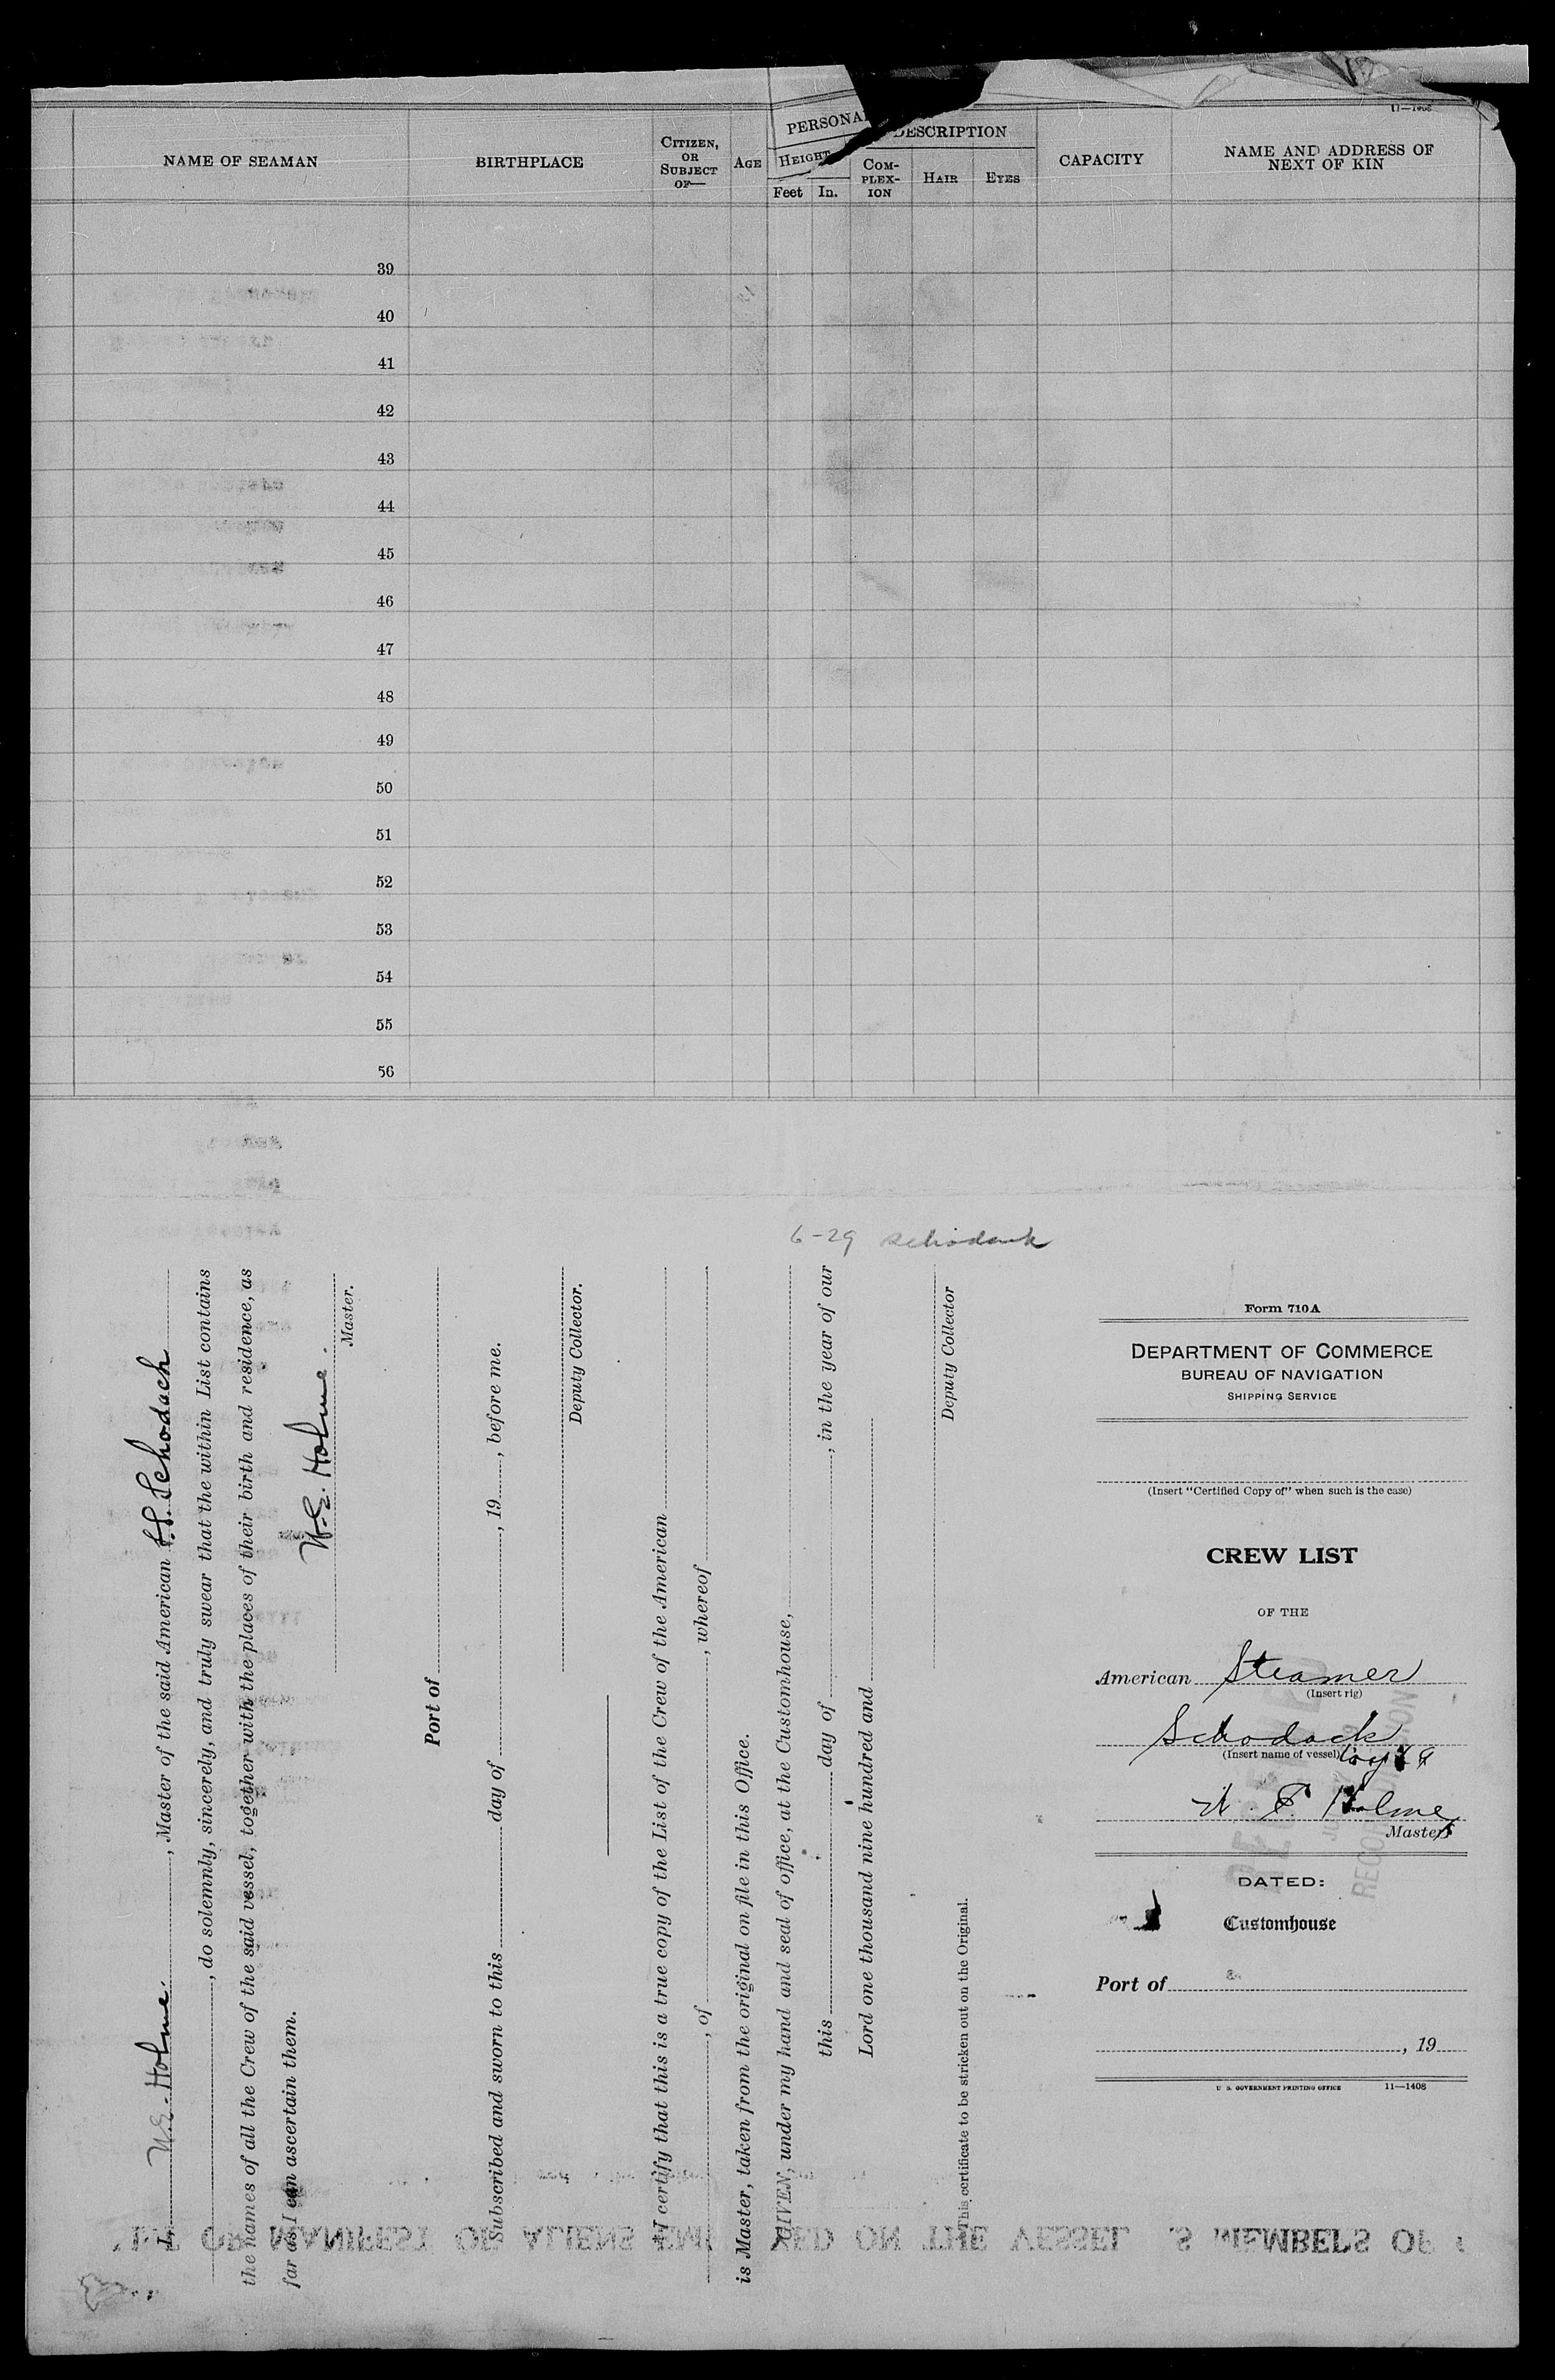 11—1408
NAME OF SEAMAN
BIRTHPLACE
CITIZEN,
OR
SUBJECT
OF—
AGE
PERSONAL DESCRIPTION
HEIGHT
Feet In.
COM-
PLEX-
ION
HAIR
EYES
CAPACITY
NAME AND ADDRESS OF
NEXT OF KIN
39
40
41
42
43
44
45
46
47
48
49
50
51
52
53
54
55
56
6-29 Schodack
I, W.E. Holme., Master of the said American S.S. Schodack
, do solemnly, sincerely, and truly swear that the within List contains
the names of all the Crew of the said vessel, together with the places of their birth and residence, as
far as I can ascertain them.
W.E. Holme.
Master.
Port of
Subscribed and sworn to this day of , 19 , before me.
Deputy Collector.
I certify that this is a true copy of the List of the Crew of the American
, of , whereof
is Master, taken from the original on file in this Office.
GIVEN, under my hand and seal of office, at the Customhouse,
this day of , in the year of our
Lord one thousand nine hundred and
Deputy Collector
This certificate to be stricken out on the Original.
Form 710A
DEPARTMENT OF COMMERCE
BUREAU OF NAVIGATION
SHIPPING SERVICE
(Insert "Certified Copy of" when such is the case)
CREW LIST
OF THE
American Steamer
(Insert rig)
Schodack
(Insert name of vessel)
W. E. Holme
Master
DATED:
Customhouse
Port of
, 19
U. S. GOVERNMENT PRINTING OFFICE 11—1408
OR MANIFEST OF ALIENS EMPLOYED ON THE VESSEL AS MEMBERS OF